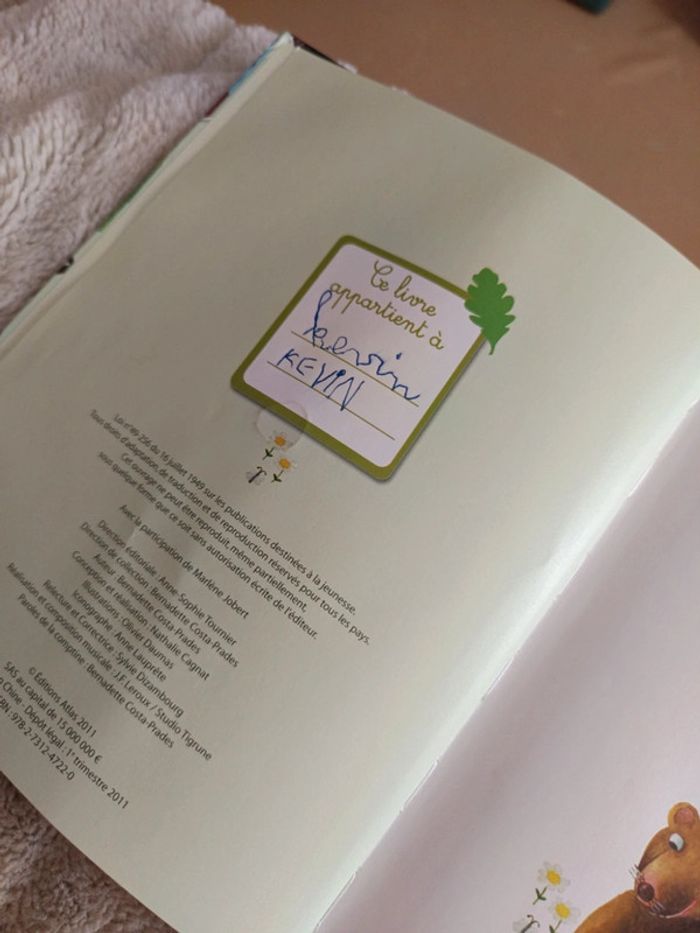 Ce livre
appartient à
kevin
KEVIN
Loi n°49-256 du 16 juillet 1949 sur les publications destinées à la jeunesse.
Tous droits d'adaptation, de traduction et de reproduction réservés pour tous les pays.
Cet ouvrage ne peut être reproduit, même partiellement,
sous quelque forme que ce soit sans autorisation écrite de l'éditeur.
Avec la participation de Marlène Jobert
Direction éditoriale : Anne-Sophie Tournier
Direction de collection : Bernadette Costa-Prades
Auteur : Bernadette Costa-Prades
Conception et réalisation : Nathalie Cagnat
Illustrations : Olivier Daumas
Iconographe : Anne Lauprète
Relecture et Correctrice : Sylvie Dizambourg
Réalisation et composition musicale : J.F. Leroux / Studio Tigrune
Paroles de la comptine : Bernadette Costa-Prades
© Éditions Atlas 2011
SAS au capital de 15 000 000 €
Chine - Dépôt légal : 1er trimestre 2011
978-2-7312-4722-0